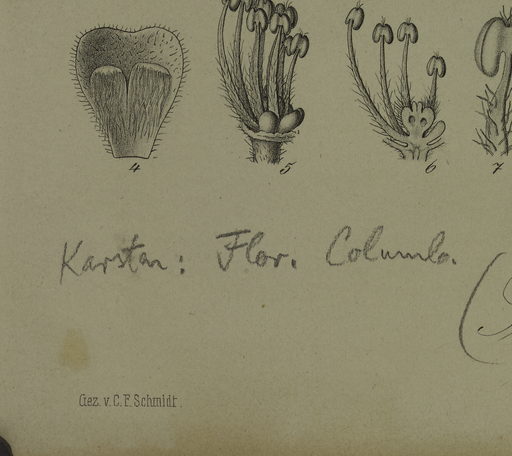 4 5 6 7
Karsten: Flor. Columb.
Gez. v. C. F. Schmidt.